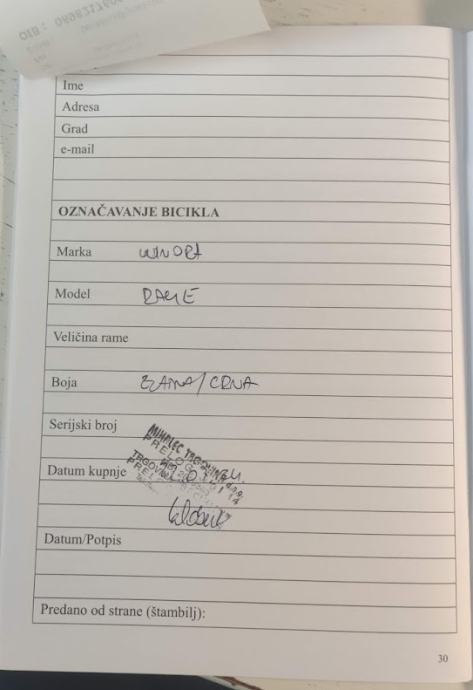 Ime
Adresa
Grad
e-mail
OZNAČAVANJE BICIKLA
Marka WINORA
Model DAME
Veličina rame
Boja ZLATNA/CRNA
Serijski broj
MIHALEC TRGOVINA d.o.o.
Datum kupnje
Datum/Potpis
Predano od strane (štambilj):
30